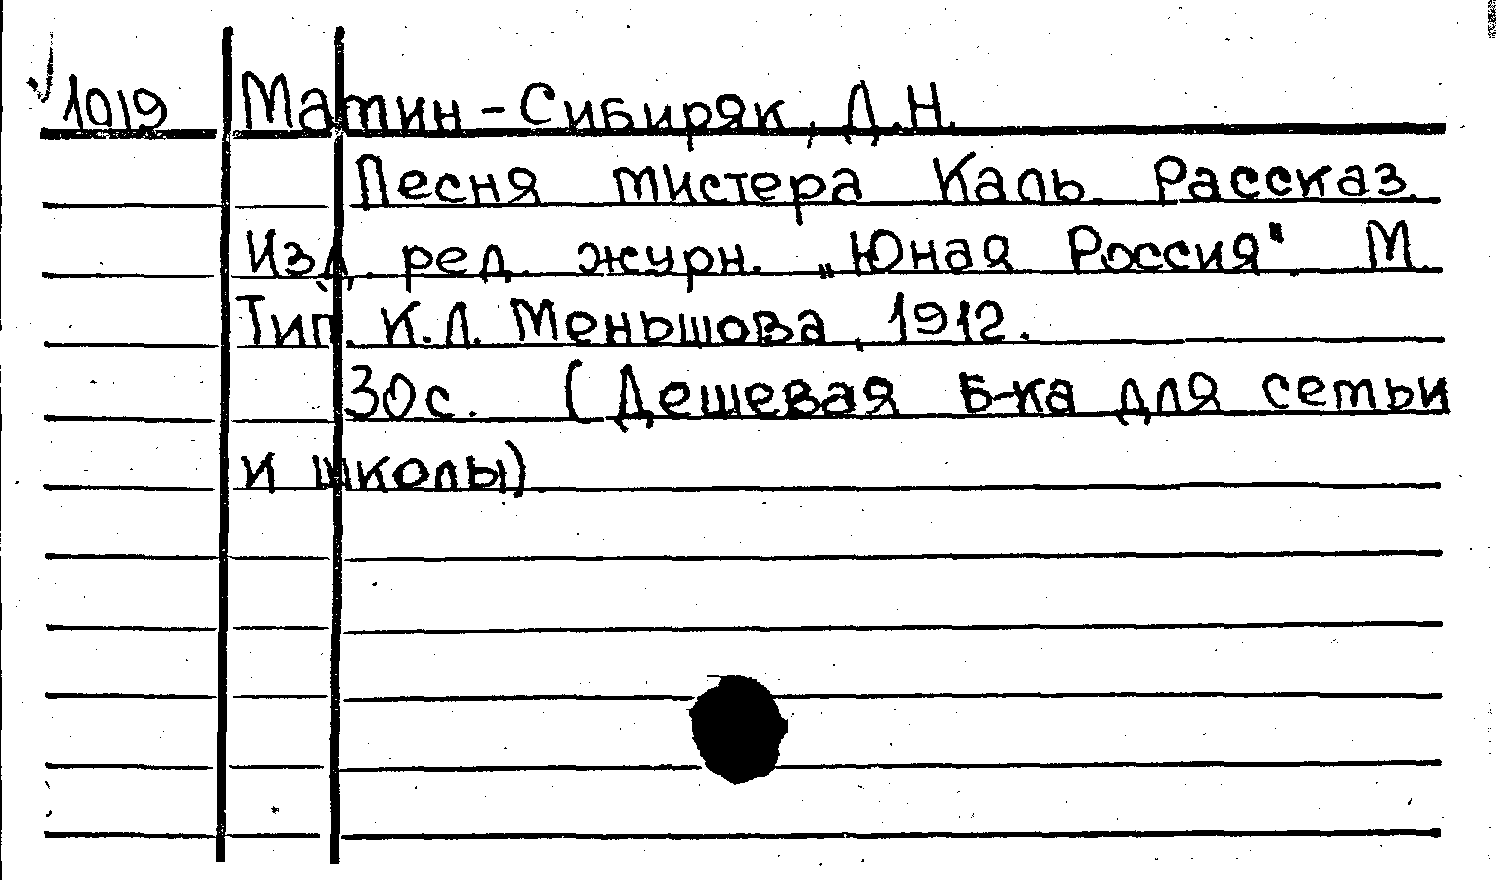 1019 Матин-Сибиряк, Д.Н.
Песня тистера Каль. Рассказ.
Изд. ред. журн. „Юная Россия". М.
Тип. К.Л. Меньшова, 1912.
30с. (Дешевая Б-ка для сетьи
и школы)